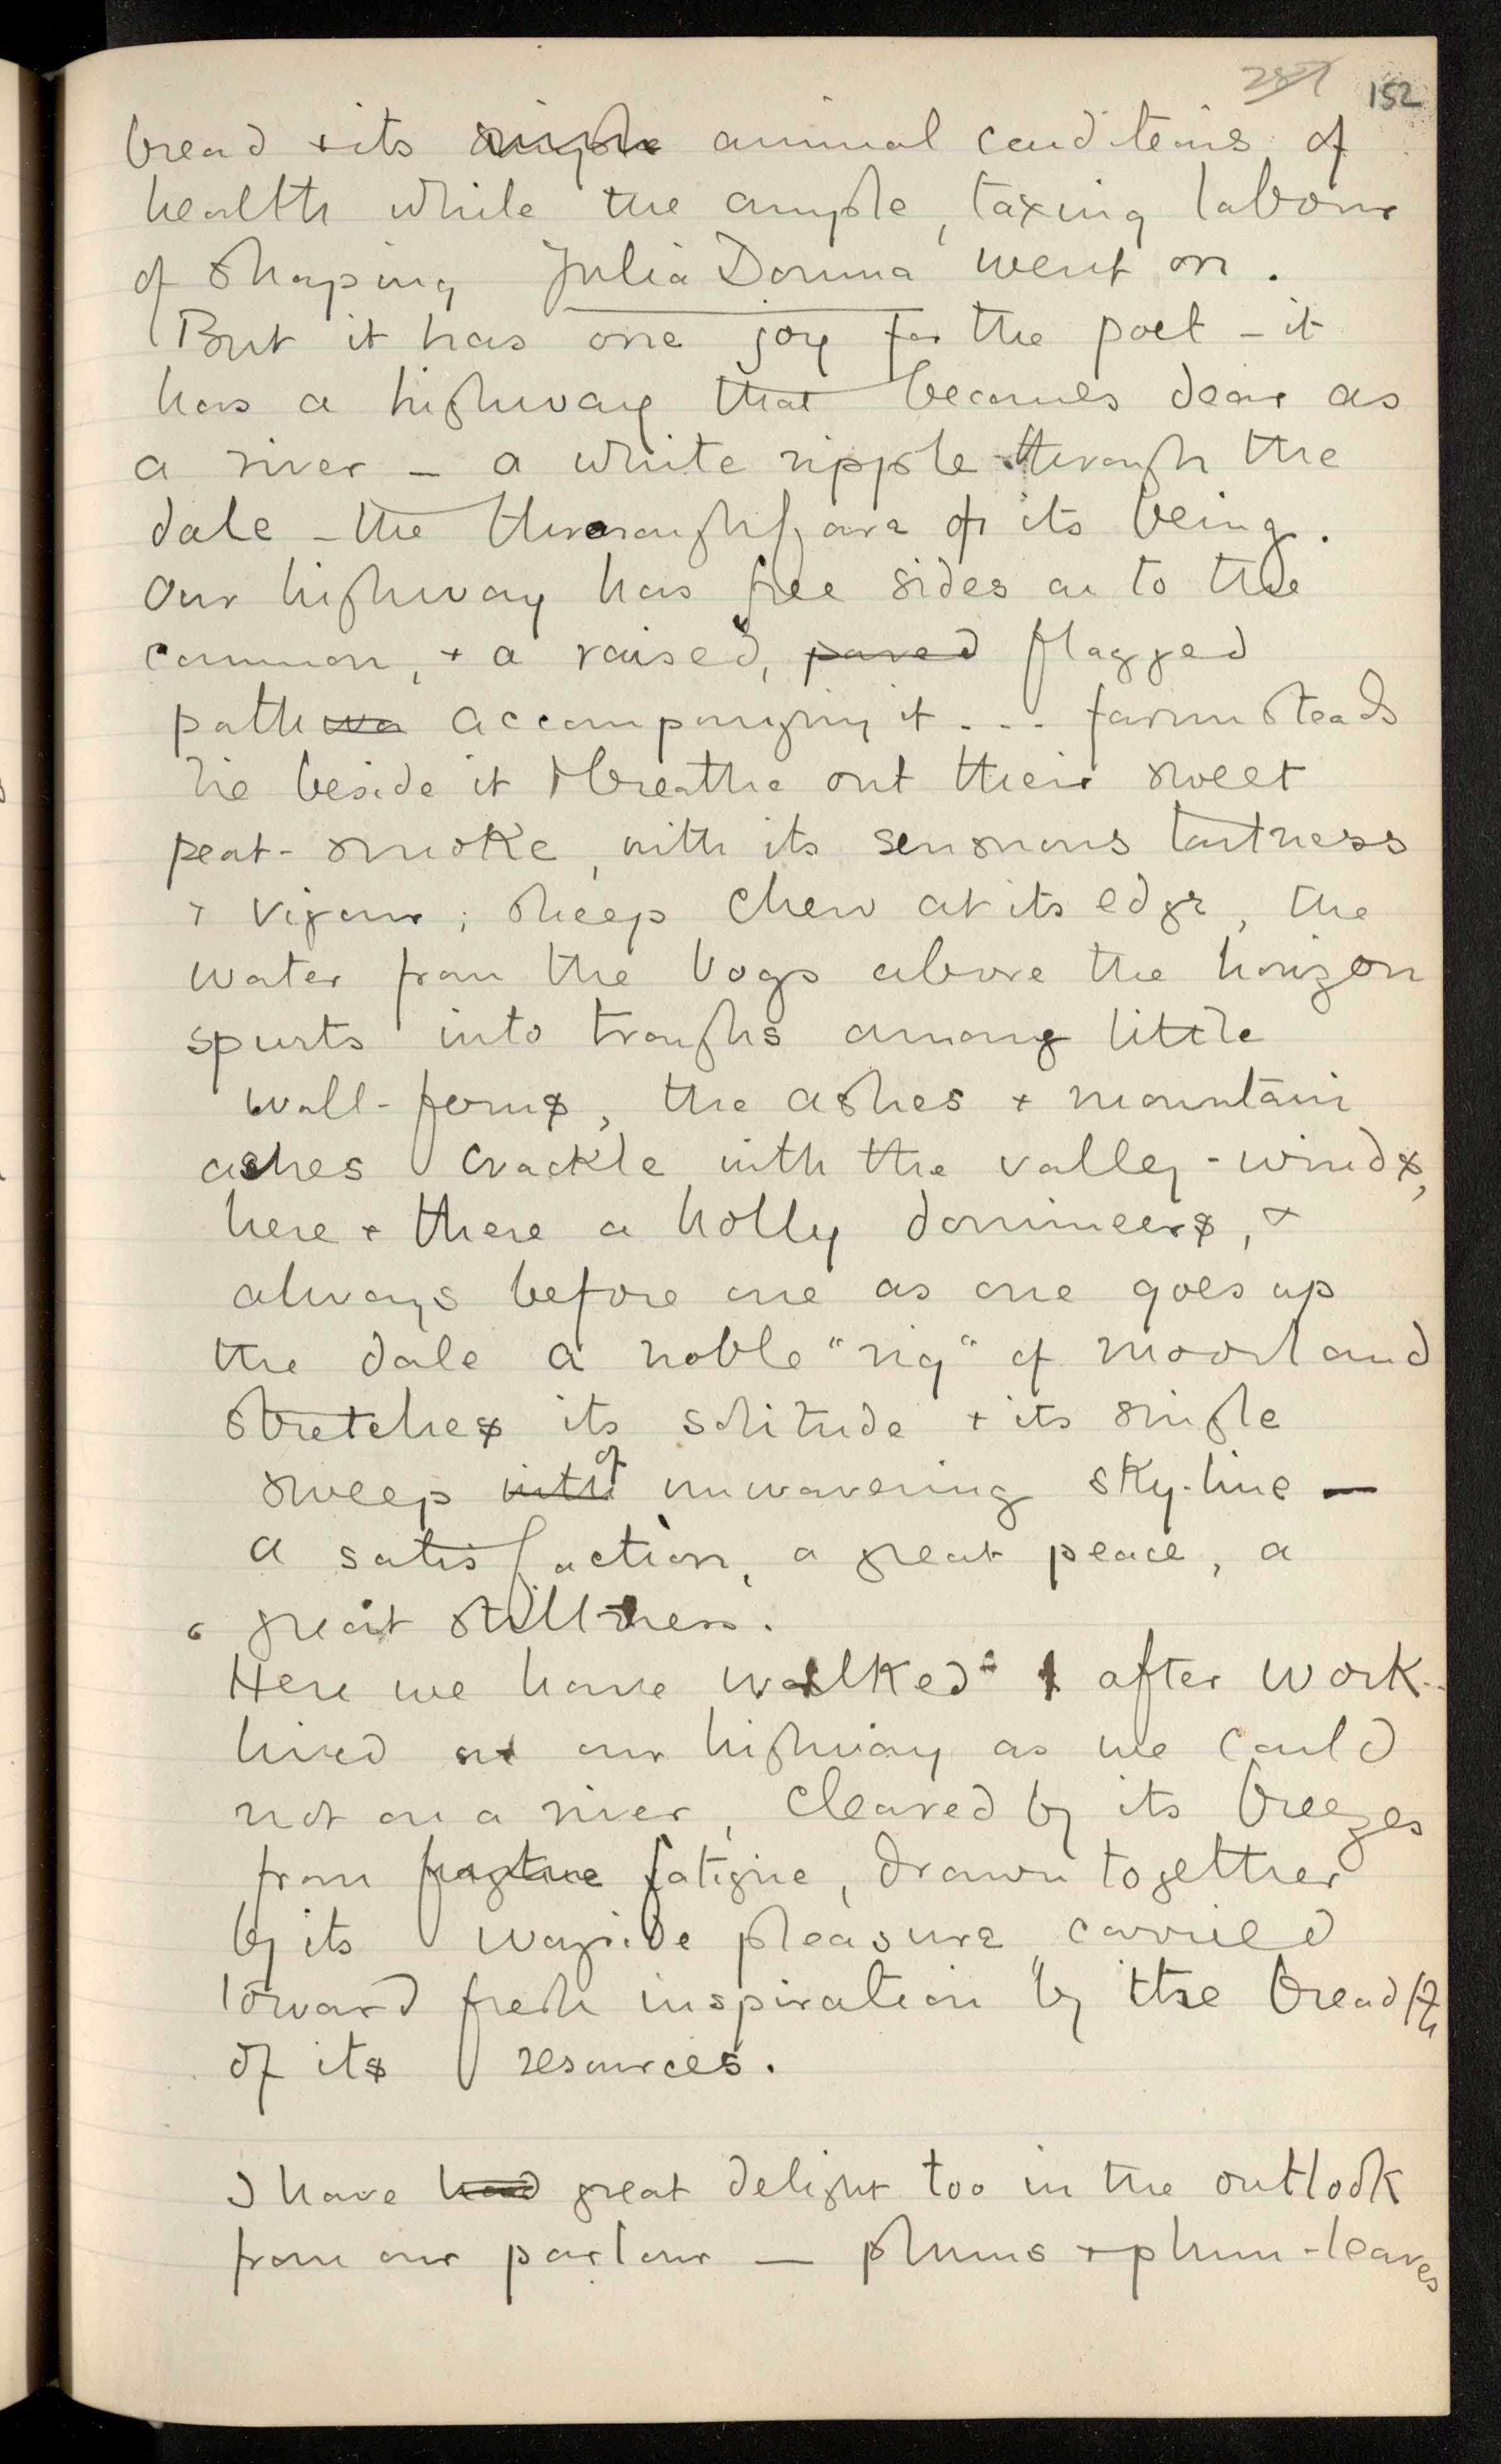 287 152
bread + its simple animal conditions of
health while the ample, taxing labour
of shaping Julia Domna went on.
But it has one joy for the poet – it
has a highway that becomes dear as
a river – a white ripple through the
dale – the thoroughfare of its being.
Our highway has free sides on to the
common, + a raised, paved flagged
path accompanying it ... farmsteads
lie beside it + breathe out their sweet
peat-smoke, with its sensuous tartness
+ vigour; sheep chew at its edge, the
water from the bogs above the horizon
spurts into troughs among little
wall-ferns, the ashes + mountain
ashes crackle with the valley-winds,
here + there a holly domineers, +
always before one as one goes up
the dale a noble "rig" of moorland
stretches its solitude + its single
sweep with of unwavering sky-line —
a satisfaction, a great peace, a
great stillness.
Here we have walked after work –
lived on our highway as we could
not on a river, cleared by its breezes
from fatigue, drawn together
by its wayside pleasure, carried
toward fresh inspiration by the breadth
of its resources.
I have had great delight too in the outlook
from our parlour — plums + plum-leaves